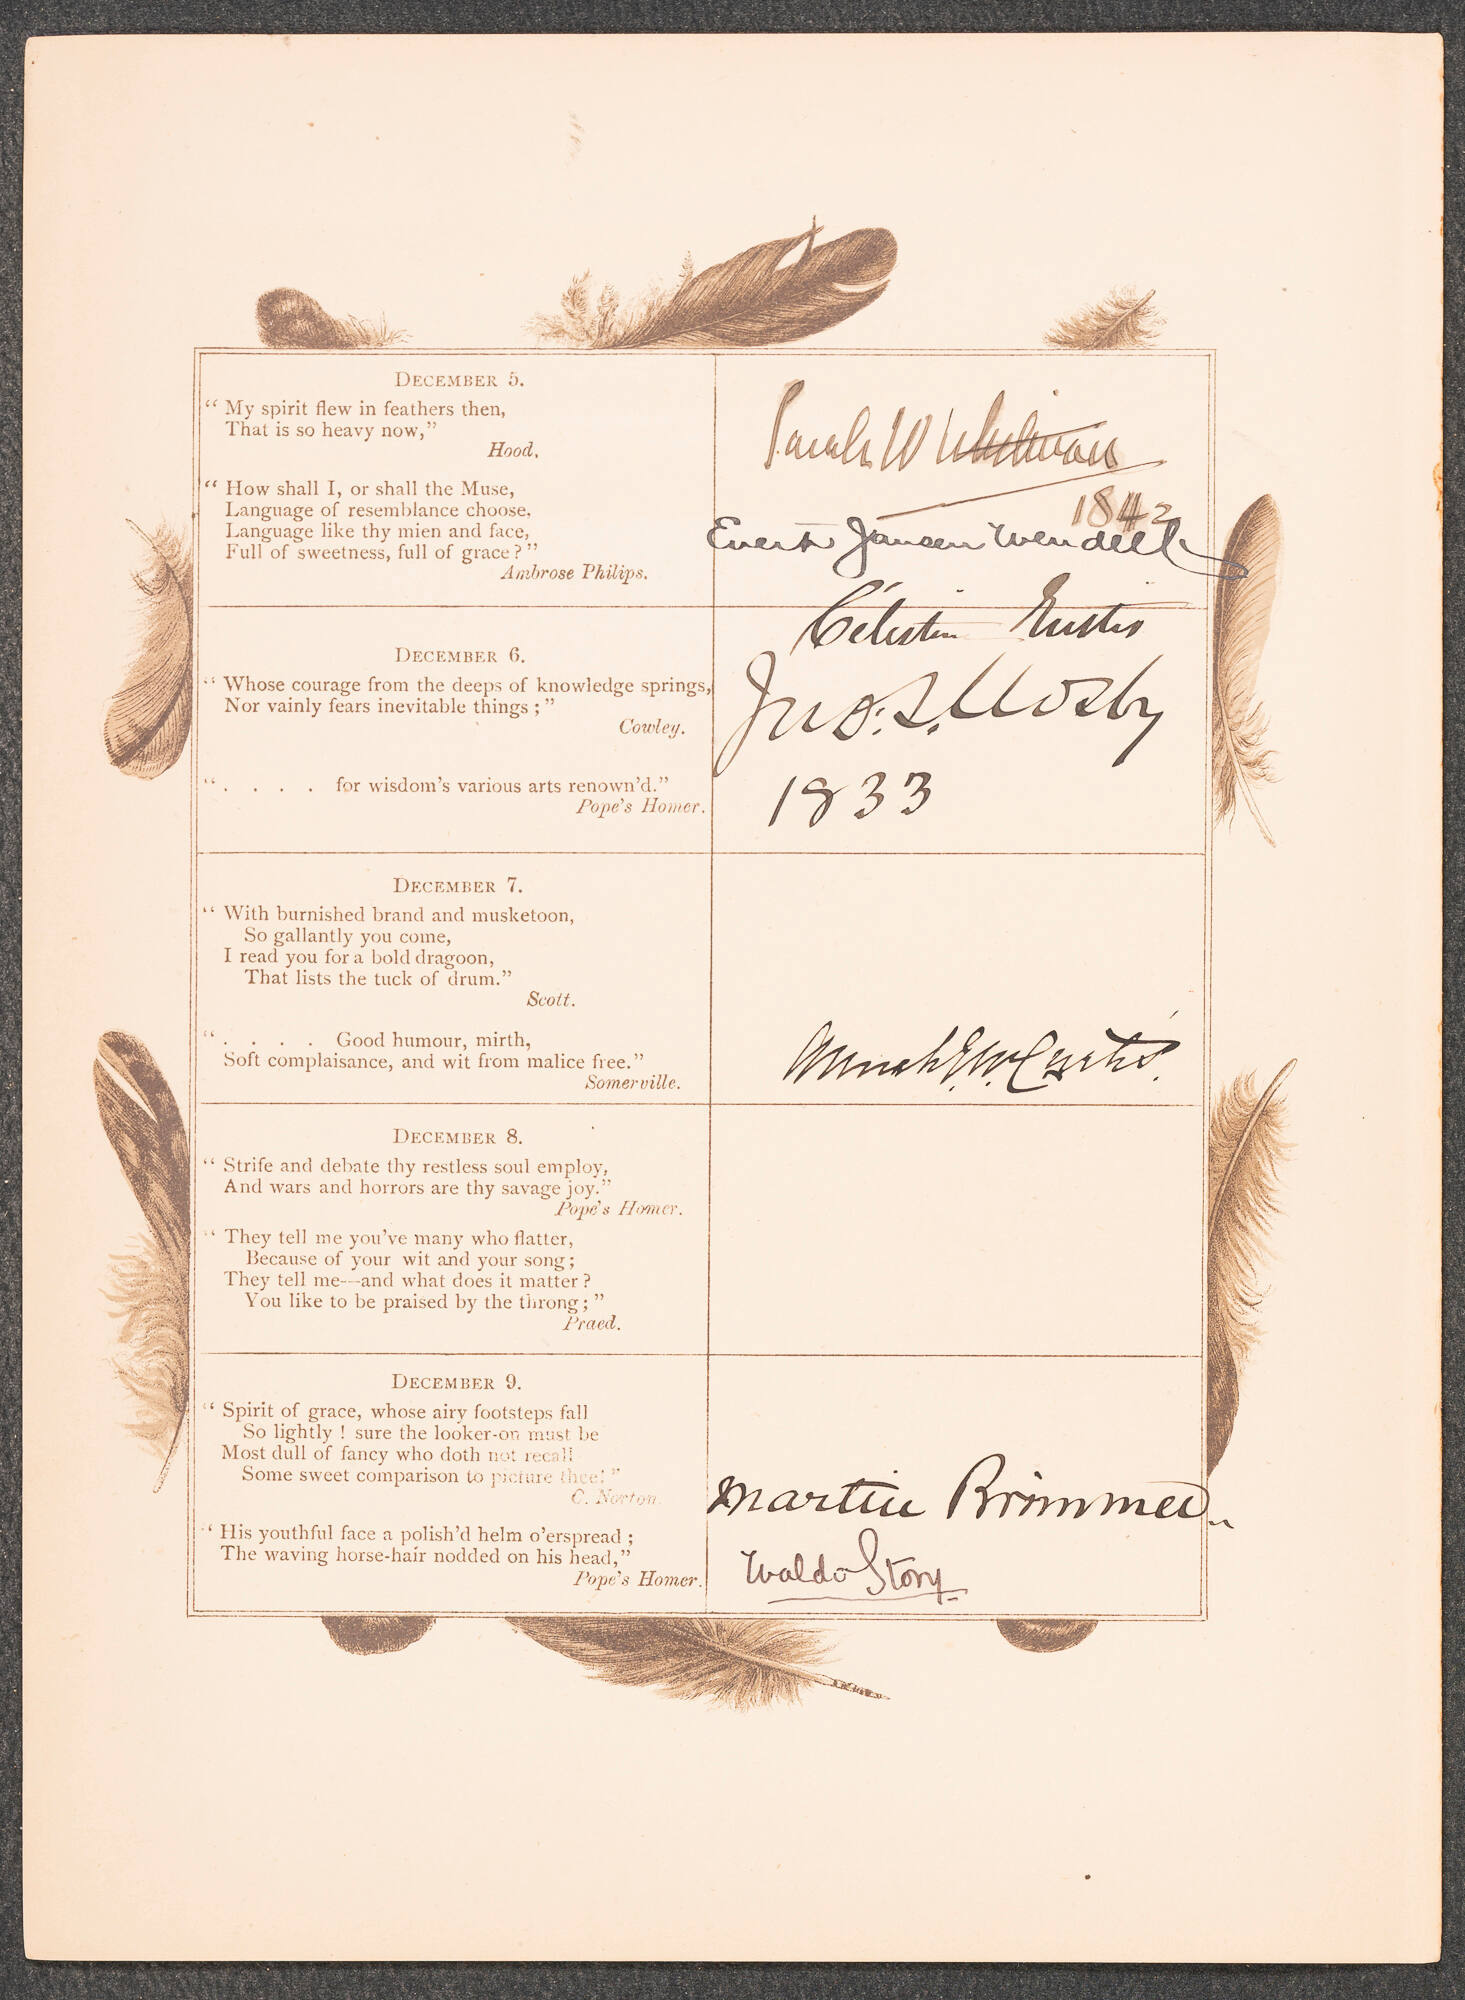 DECEMBER 5.
“ My spirit flew in feathers then,
That is so heavy now,”
Hood.
“ How shall I, or shall the Muse,
Language of resemblance choose,
Language like thy mien and face,
Full of sweetness, full of grace ? ”
Ambrose Philips.
Sarah W Whitman
1842
Evert Jansen Wendell
DECEMBER 6.
“ Whose courage from the deeps of knowledge springs,
Nor vainly fears inevitable things ; ”
Cowley.
“ . . . . for wisdom's various arts renown'd.”
Pope's Homer.
Célestin Eustis
Jno. S. Mosby
1833
DECEMBER 7.
“ With burnished brand and musketoon,
So gallantly you come,
I read you for a bold dragoon,
That lists the tuck of drum.”
Scott.
“ . . . . Good humour, mirth,
Soft complaisance, and wit from malice free.”
Somerville.
Curtis.
DECEMBER 8.
“ Strife and debate thy restless soul employ,
And wars and horrors are thy savage joy.”
Pope's Homer.
“ They tell me you've many who flatter,
Because of your wit and your song ;
They tell me—and what does it matter ?
You like to be praised by the throng ; ”
Praed.
DECEMBER 9.
“ Spirit of grace, whose airy footsteps fall
So lightly ! sure the looker-on must be
Most dull of fancy who doth not recall
Some sweet comparison to picture thee! ”
C. Norton.
“ His youthful face a polish'd helm o'erspread ;
The waving horse-hair nodded on his head,”
Pope's Homer.
Martin Brimmer
Waldo Story